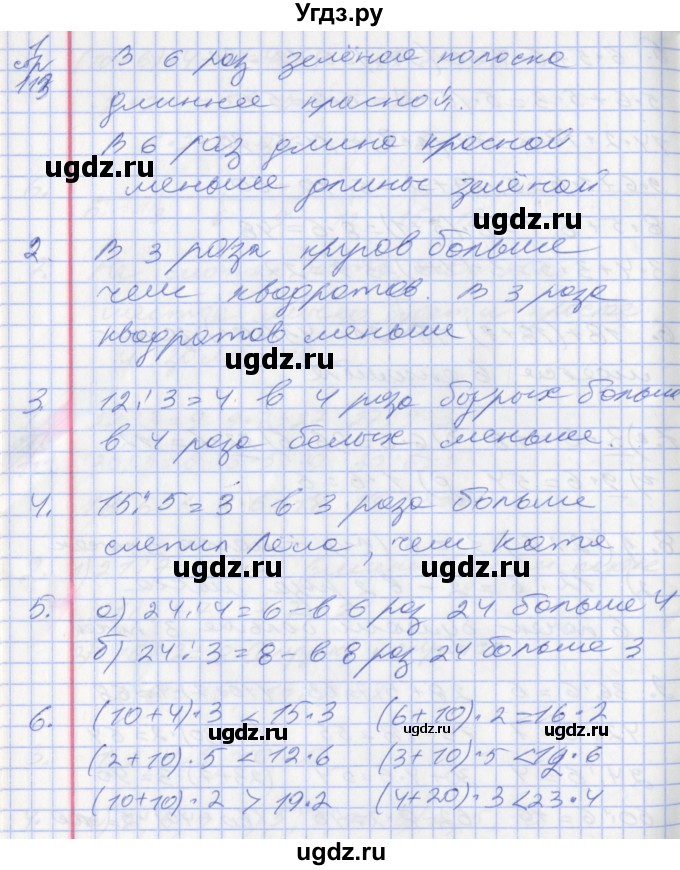 Угдз.ру
1
стр
113
В 6 раз зелёная полоска
длиннее красной.
В 6 раз длина красной
меньше длины зелёной
ugdz.ru ugdz.ru
2. В 3 раза кругов больше
чем квадратов. В 3 раза
квадратов меньше
ugdz.ru
3 12:3=4 в 4 раза бурых больше
в 4 раза белых меньше.
ugdz.ru ugdz.ru
4. 15:5=3 в 3 раза больше
слепил Лёла, чем Катя
ugdz.ru ugdz.ru
5. а) 24:4=6-в 6 раз 24 больше 4
б) 24:3=8-в 8 раз 24 больше 3
ugdz.ru
6. (10+4)·3 < 15·3 (6+10)·2=16·2
ugdz.ru ugdz.ru
(2+10)·5 < 12·6 (3+10)·5 <19·6
(10+10)·2 > 19·2 (4+20)·3<23·4
ugdz.ru